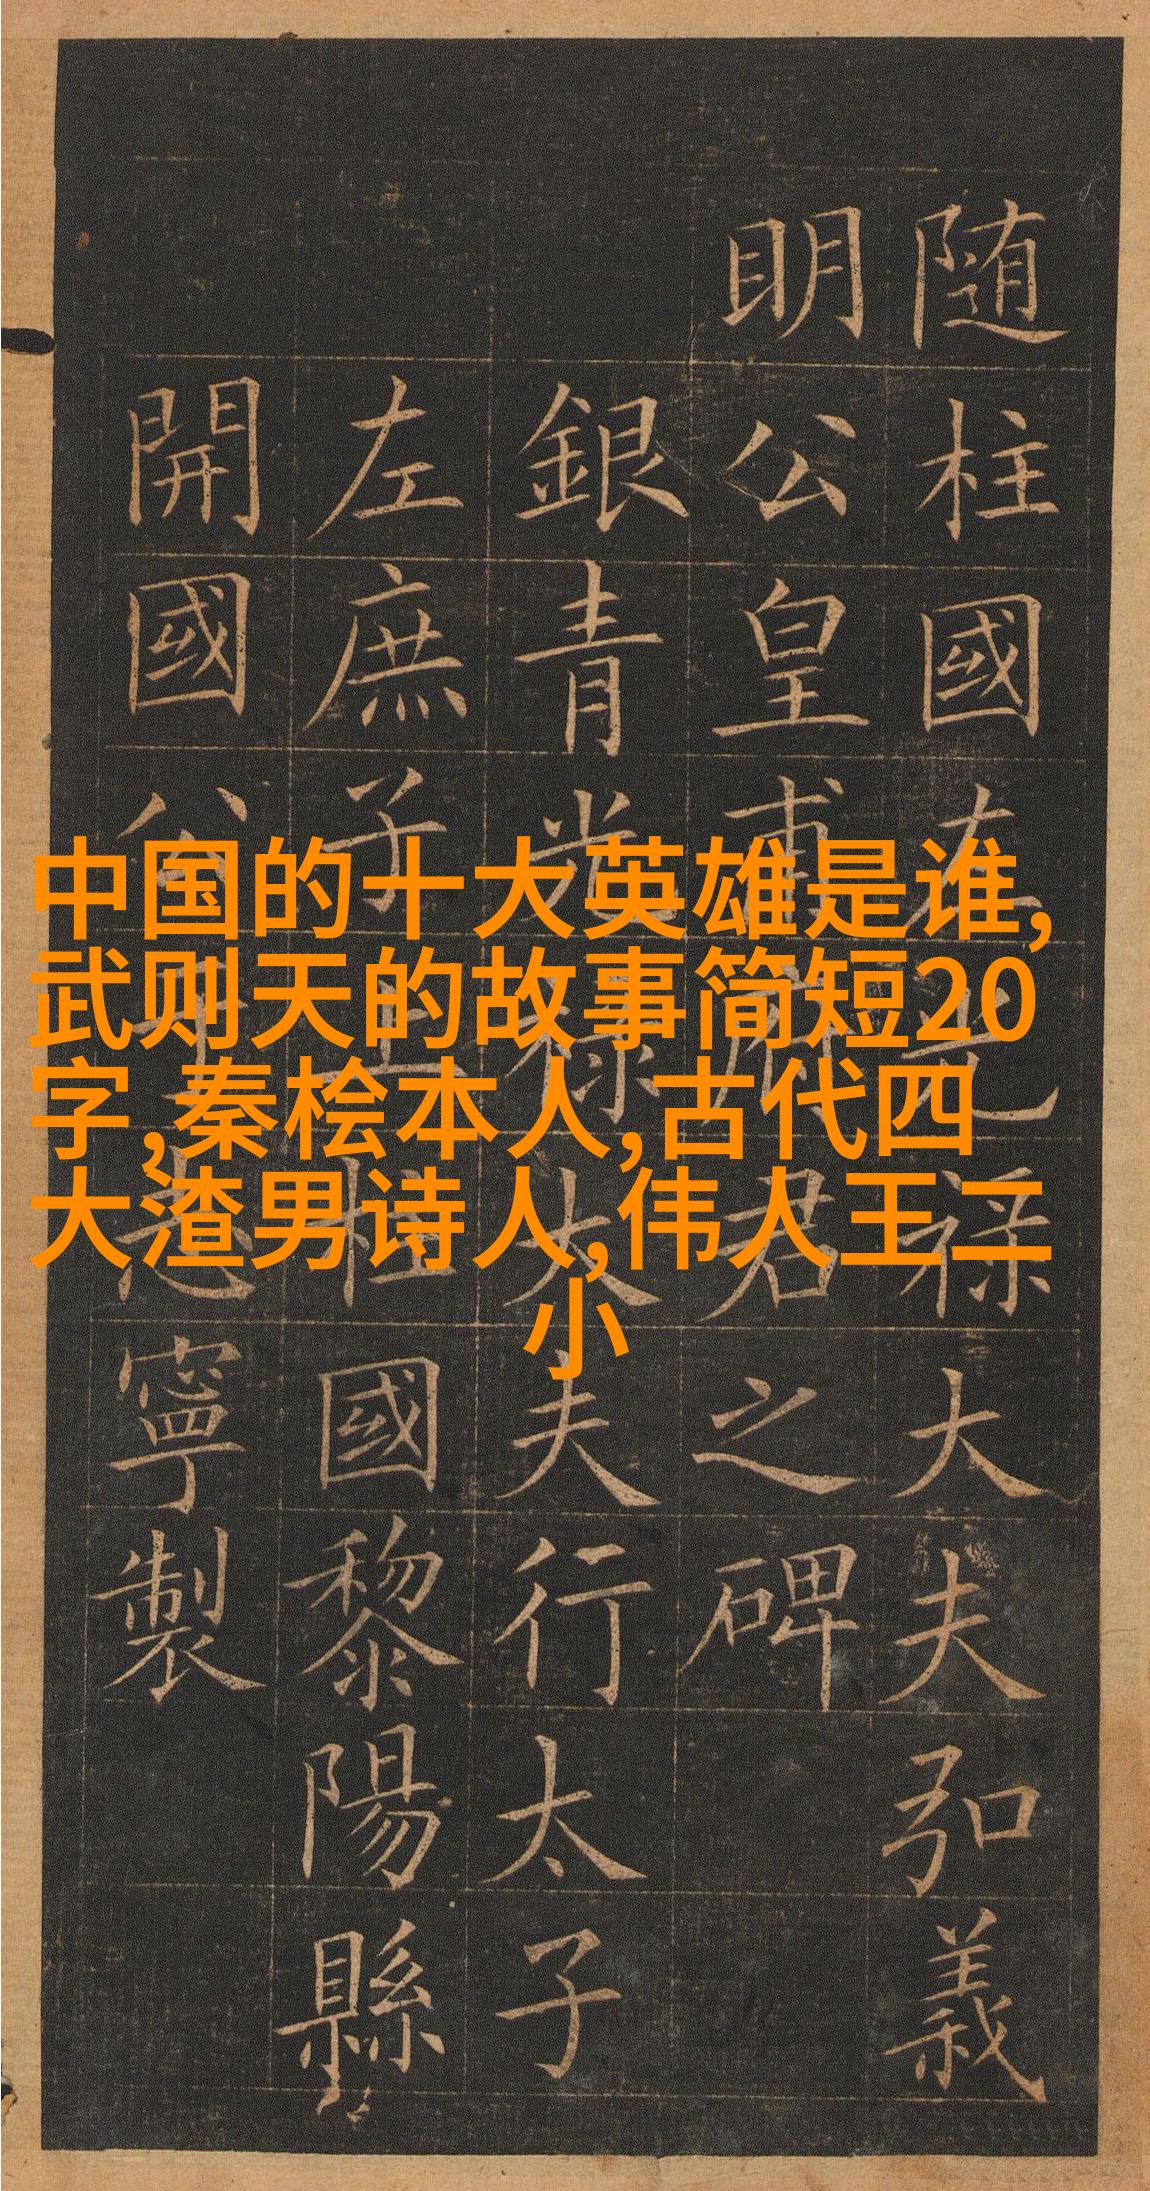 中国的十大英雄是谁,
武则天的故事简短20
字,秦桧本人,古代四
大渣男诗人,伟人王二
小
随柱國左光禄大夫弘義
明公皇甫府君之碑
銀青光禄大夫行太子
左庶子上柱國黎陽縣
開國公于志寧製